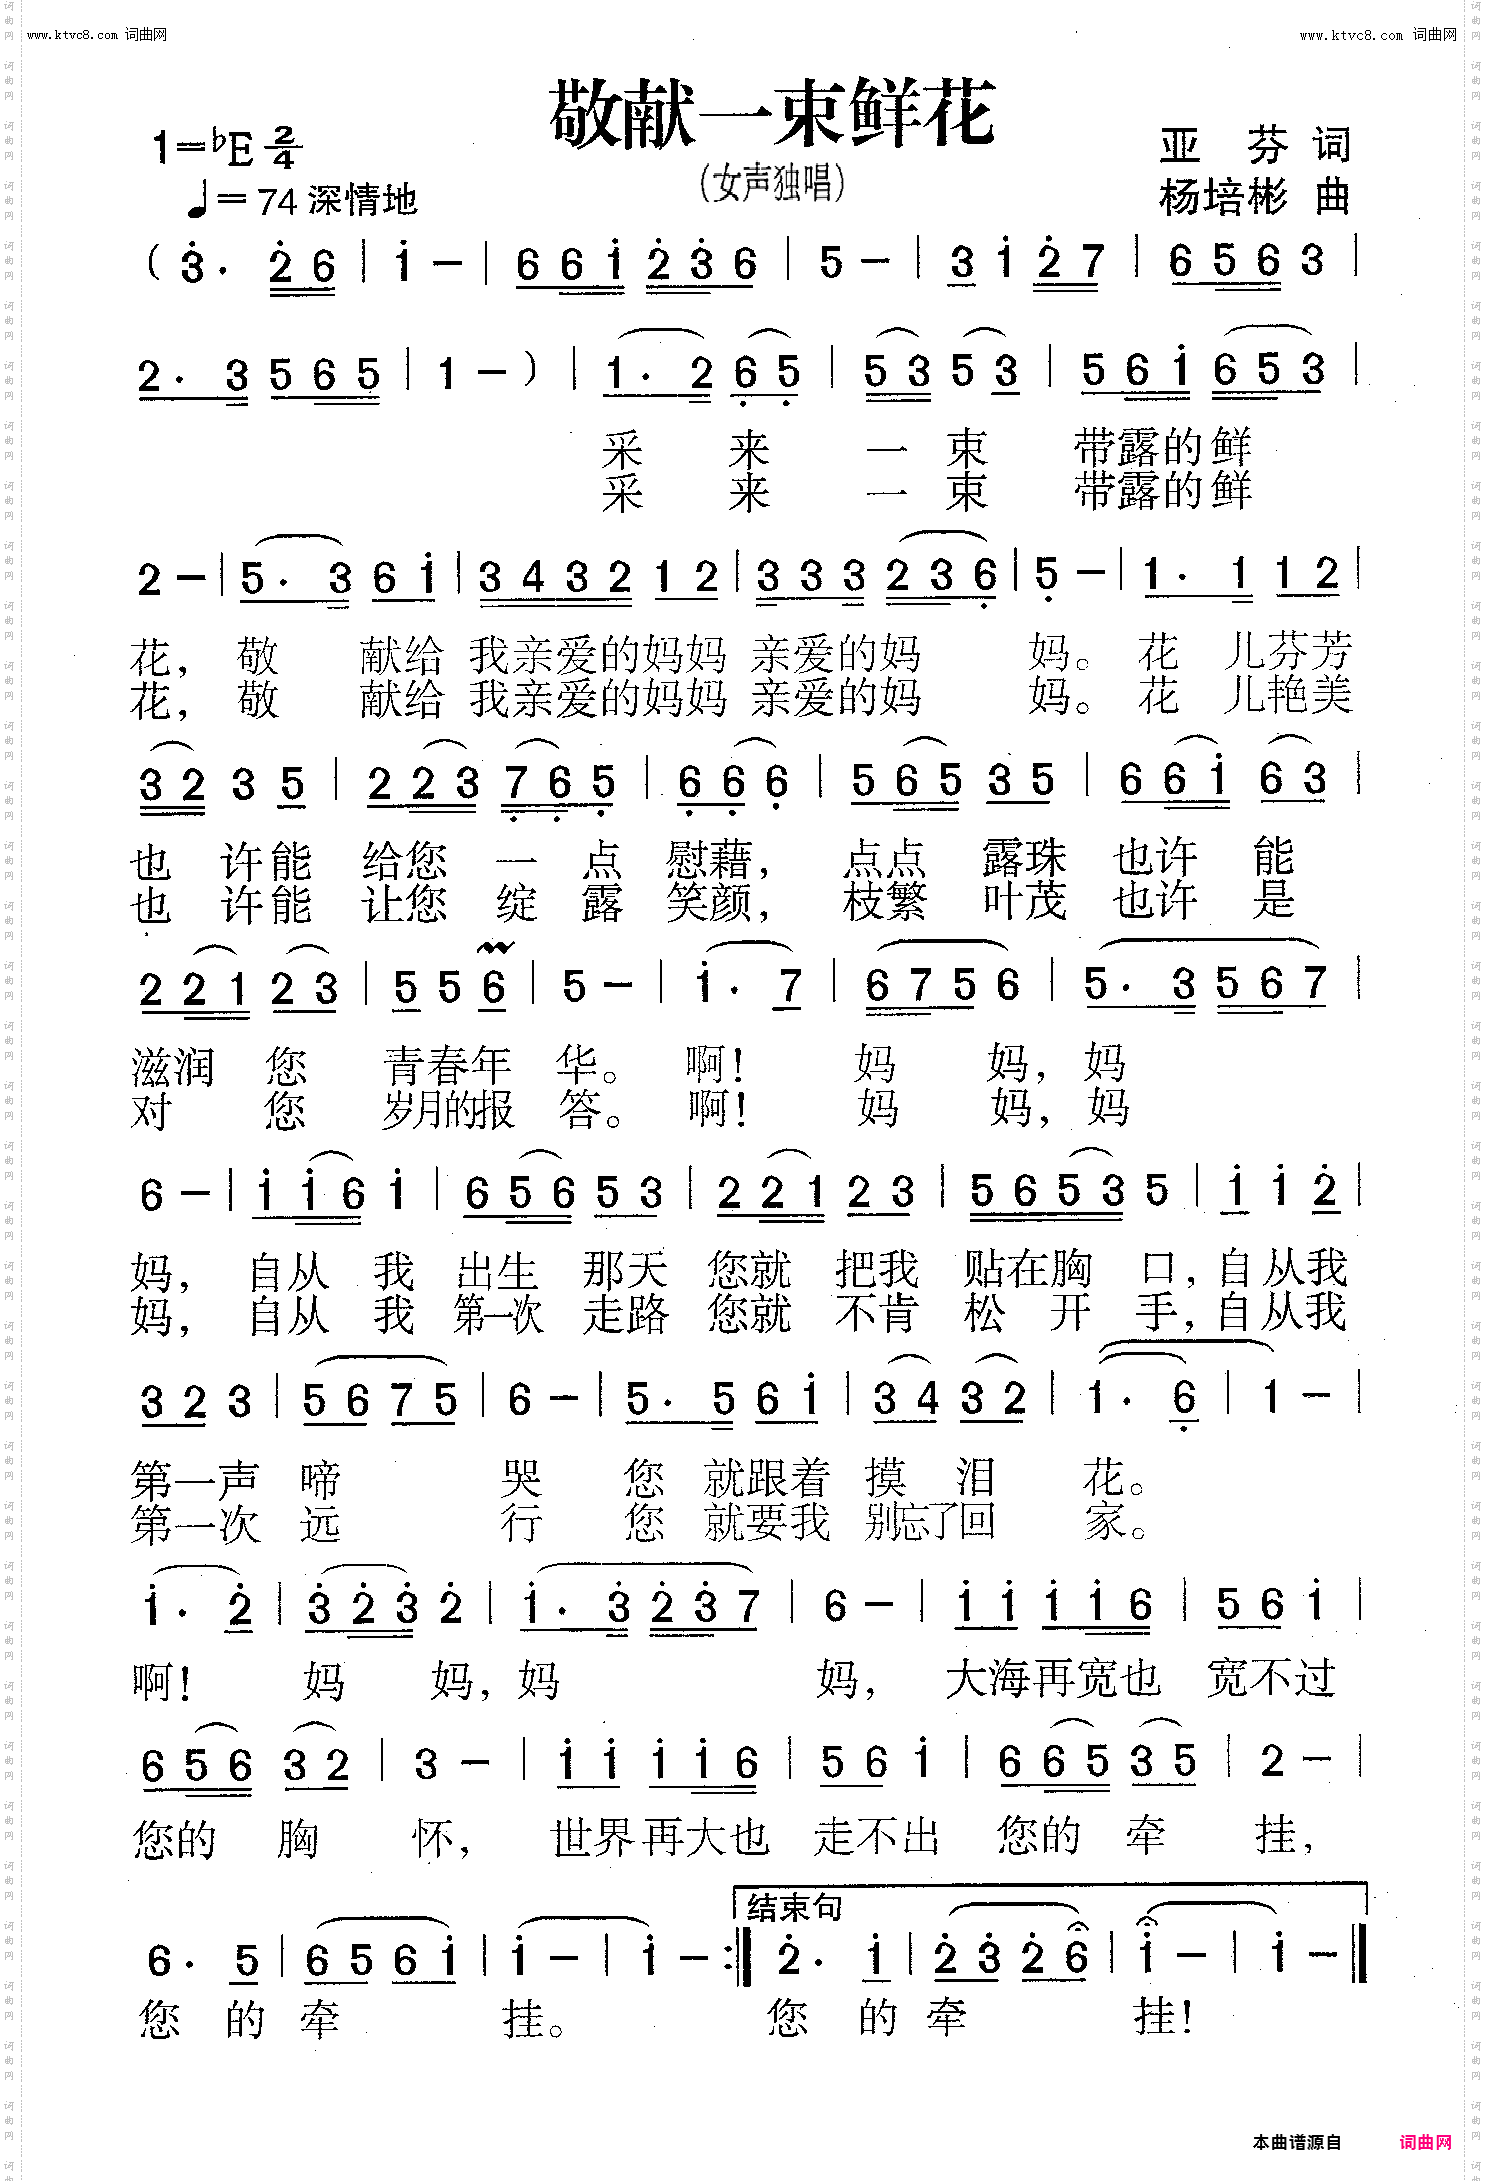 www.ktvc8.com 词曲网
www.ktvc8.com 词曲网
敬献一束鲜花
1=♭E 2/4
亚 芬 词
(女声独唱)
♩= 74 深情地
杨培彬 曲
( 3̇. 2̇ 6 | 1̇ - | 6 6 1̇ 2̇ 3̇ 6 | 5 - | 3 1̇ 2̇ 7 | 6 5 6 3 |
2. 3 5 6 5 | 1 - ) | 1. 2 6̣ 5̣ | 5 3 5 3 | 5 6 1̇ 6 5 3 |
采 来 一 束 带露的鲜
采 来 一 束 带露的鲜
2 - | 5. 3 6 1̇ | 3 4 3 2 1 2 | 3 3 3 2 3 6̣ | 5̣ - | 1. 1 1 2 |
花, 敬 献给 我亲爱的妈妈 亲爱的妈 妈。花 儿芬芳
花, 敬 献给 我亲爱的妈妈 亲爱的妈 妈。花 儿艳美
3 2 3 5 | 2 2 3 7̣ 6̣ 5̣ | 6̣ 6̣ 6̣ | 5 6 5 3 5 | 6 6 1̇ 6 3 |
也 许能 给您 一 点 慰藉, 点点 露珠 也许 能
也 许能 让您 绽 露 笑颜, 枝繁 叶茂 也许 是
2 2 1 2 3 | 5 5 6 | 5 - | 1̇. 7 | 6 7 5 6 | 5. 3 5 6 7 |
滋润 您 青春年 华。 啊! 妈 妈, 妈
对 您 岁月的报 答。 啊! 妈 妈, 妈
6 - | 1̇ 1̇ 6 1̇ | 6 5 6 5 3 | 2 2 1 2 3 | 5 6 5 3 5 | 1̇ 1̇ 2̇ |
妈, 自从 我 出生 那天 您就 把我 贴在胸 口, 自从我
妈, 自从 我 第一次 走路 您就 不肯 松 开 手, 自从我
3 2 3 | 5 6 7 5 | 6 - | 5. 5 6 1̇ | 3 4 3 2 | 1. 6̣ | 1 - |
第一声 啼 哭 您 就跟着 摸 泪 花。
第一次 远 行 您 就要我 别忘了回 家。
1̇. 2̇ | 3̇ 2̇ 3̇ 2̇ | 1̇. 3̇ 2̇ 3̇ 7 | 6 - | 1̇ 1̇ 1̇ 1̇ 6 | 5 6 1̇ |
啊! 妈 妈, 妈 妈, 大海再宽也 宽不过
6 5 6 3 2 | 3 - | 1̇ 1̇ 1̇ 1̇ 6 | 5 6 1̇ | 6 6 5 3 5 | 2 - |
您的 胸 怀, 世界再大也 走不出 您的 牵 挂,
结束句
6. 5 | 6 5 6 1̇ | 1̇ - | 1̇ - :‖ 2̇. 1̇ | 2̇ 3̇ 2̇ 6 | 1̇ - | 1̇ - ‖
您 的 牵 挂。 您 的 牵 挂!
本曲谱源自 词曲网